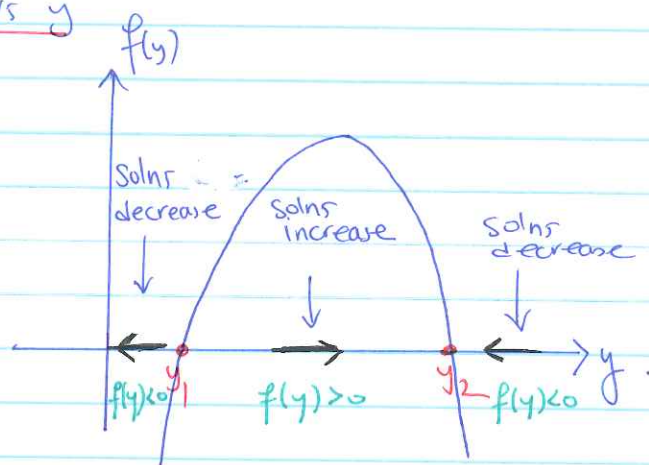 vs y
f(y)
Solns
decrease
Solns
increase
solns
decrease
y
y1
y2
f(y)<0
f(y)>0
f(y)<0